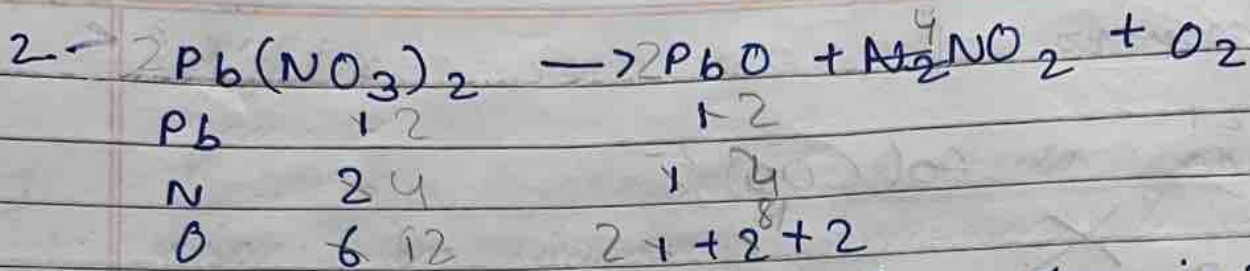 2- 2Pb(NO3)2 → 2PbO + 4NO2 + O2
Pb 1 2 1 2
N 2 4 1 4
O 6 12 2 1 + 2 8 + 2